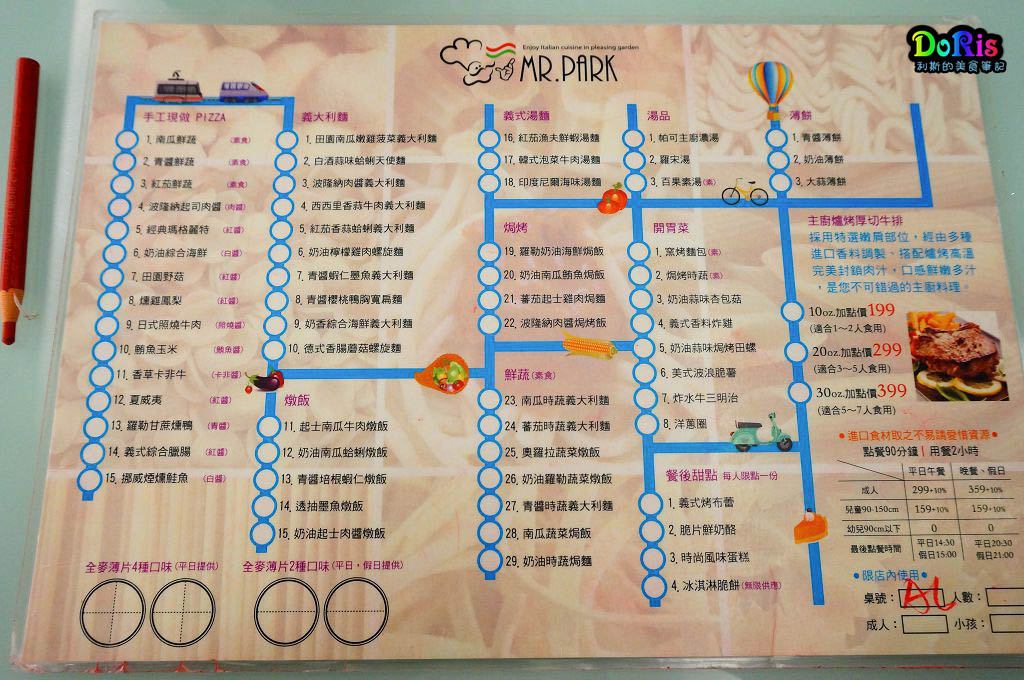 DoRis
利斯的美食筆記
Enjoy Italian cuisine in pleasing garden
MR.PARK
手工現做 PIZZA
1. 南瓜鮮蔬 (素食)
2. 青醬鮮蔬 (素食)
3. 紅茄鮮蔬 (素食)
4. 波隆納起司肉醬 (肉醬)
5. 經典瑪格麗特 (紅醬)
6. 奶油綜合海鮮 (白醬)
7. 田園野菇 (紅醬)
8. 燻雞鳳梨 (紅醬)
9. 日式照燒牛肉 (照燒醬)
10. 鮪魚玉米 (鮪魚醬)
11. 香草卡非牛 (卡非醬)
12. 夏威夷 (紅醬)
13. 羅勒甘蔗燻鴨 (青醬)
14. 義式綜合臘腸 (紅醬)
15. 挪威煙燻鮭魚 (白醬)
全麥薄片4種口味 (平日提供)
義大利麵
1. 田園南瓜嫩雞菠菜義大利麵
2. 白酒蒜味蛤蜊天使麵
3. 波隆納肉醬義大利麵
4. 西西里香蒜牛肉義大利麵
5. 紅茄香蒜蛤蜊義大利麵
6. 奶油檸檬雞肉螺旋麵
7. 青醬蝦仁墨魚義大利麵
8. 青醬櫻桃鴨胸寬扁麵
9. 奶香綜合海鮮義大利麵
10. 德式香腸蘑菇螺旋麵
燉飯
11. 起士南瓜牛肉燉飯
12. 奶油南瓜蛤蜊燉飯
13. 青醬培根蝦仁燉飯
14. 透抽墨魚燉飯
15. 奶油起士肉醬燉飯
全麥薄片2種口味 (平日，假日提供)
義式湯麵
16. 紅茄漁夫鮮蝦湯麵
17. 韓式泡菜牛肉湯麵
18. 印度尼爾海味湯麵
焗烤
19. 羅勒奶油海鮮焗飯
20. 奶油南瓜鮪魚焗飯
21. 蕃茄起士雞肉焗麵
22. 波隆納肉醬焗烤飯
鮮蔬 (素食)
23. 南瓜時蔬義大利麵
24. 蕃茄時蔬義大利麵
25. 奧羅拉蔬菜燉飯
26. 奶油羅勒蔬菜燉飯
27. 青醬時蔬義大利麵
28. 南瓜蔬菜焗飯
29. 奶油時蔬焗麵
湯品
1. 帕可主廚濃湯
2. 羅宋湯
3. 百果素湯 (素)
開胃菜
1. 窯烤麵包 (素)
2. 焗烤時蔬 (素)
3. 奶油蒜味杏包菇
4. 義式香料炸雞
5. 奶油蒜味焗烤田螺
6. 美式波浪脆薯
7. 炸水牛三明治
8. 洋蔥圈
餐後甜點 每人限點一份
1. 義式烤布蕾
2. 脆片鮮奶酪
3. 時尚風味蛋糕
4. 冰淇淋脆餅 (無限供應)
薄餅
1. 青醬薄餅
2. 奶油薄餅
3. 大蒜薄餅
主廚爐烤厚切牛排
採用特選嫩肩部位，經由多種
進口香料調製、搭配爐烤高溫
完美封鎖肉汁，口感鮮嫩多汁
，是您不可錯過的主廚料理。
10oz.加點價199
(適合1～2人食用)
20oz.加點價299
(適合3～5人食用)
30oz.加點價399
(適合5～7人食用)
●進口食材取之不易請愛惜資源●
點餐90分鐘 | 用餐2小時
平日午餐 晚餐、假日
成人 299+10% 359+10%
兒童90-150cm 159+10% 159+10%
幼兒90cm以下 0 0
最後點餐時間 平日14:30 假日15:00 平日20:30 假日21:00
●限店內使用●
桌號： A6 人數：
成人： 小孩：